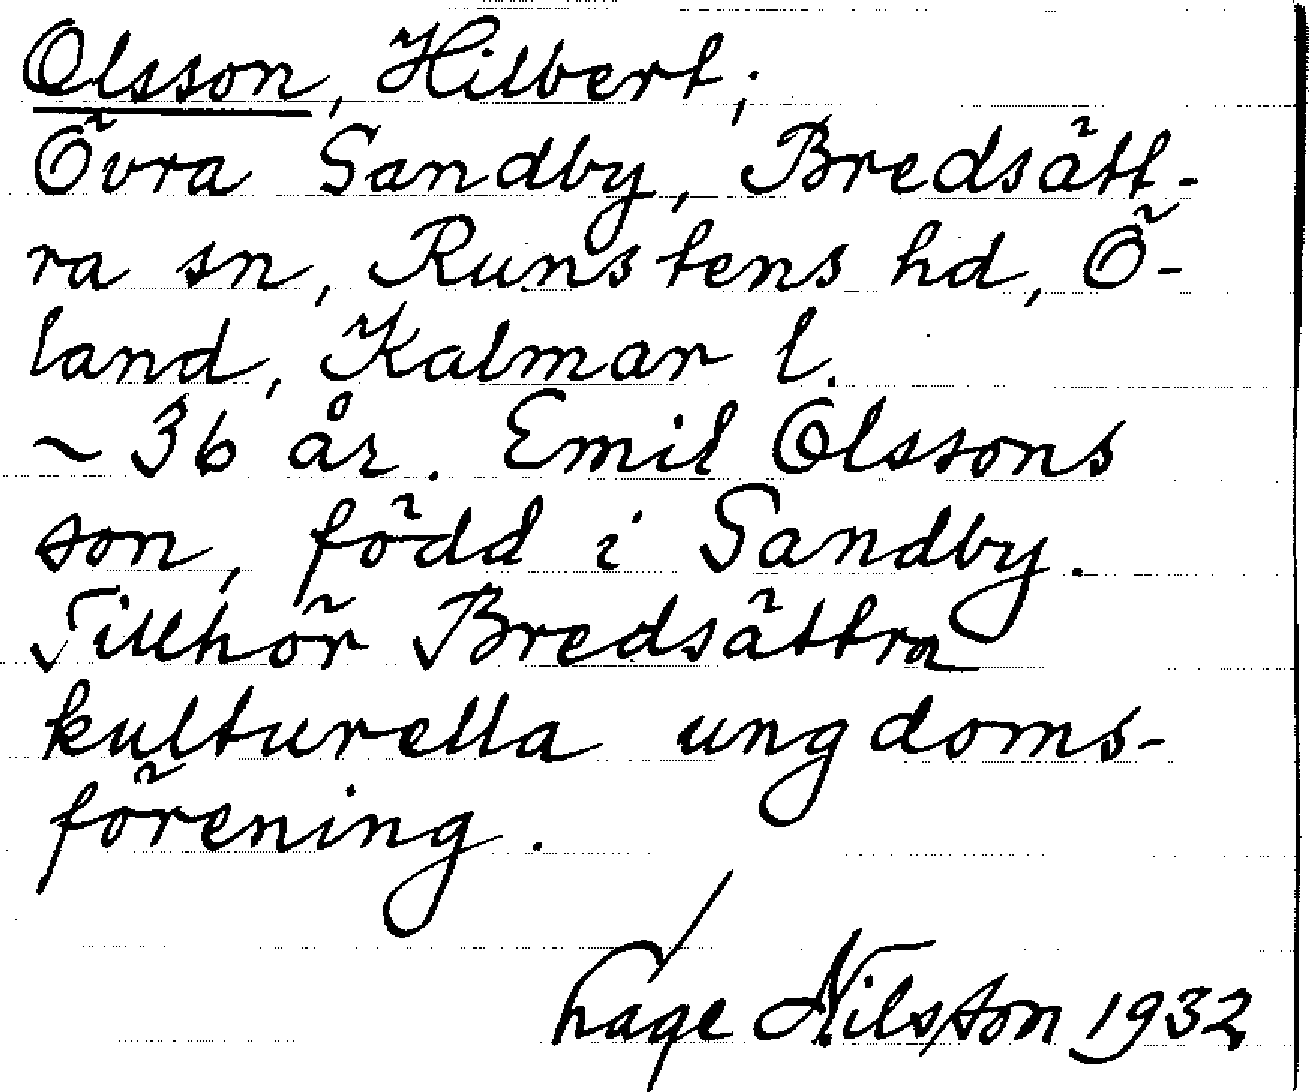 Olsson, Hilbert;
Övra Sandby, Bredsätt-
ra sn, Runstens hd, Ö-
land, Kalmar l.
~ 36 år. Emil Olssons
son, född i Sandby.
Tillhör Bredsättra
kulturella ungdoms-
förening.
Nilsson 1932